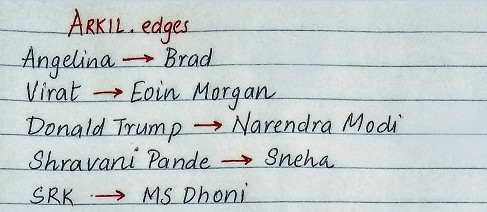 ARKIL.edges
Angelina → Brad
Virat → Eoin Morgan
Donald Trump → Narendra Modi
Shravani Pande → Sneha
SRK → MS Dhoni